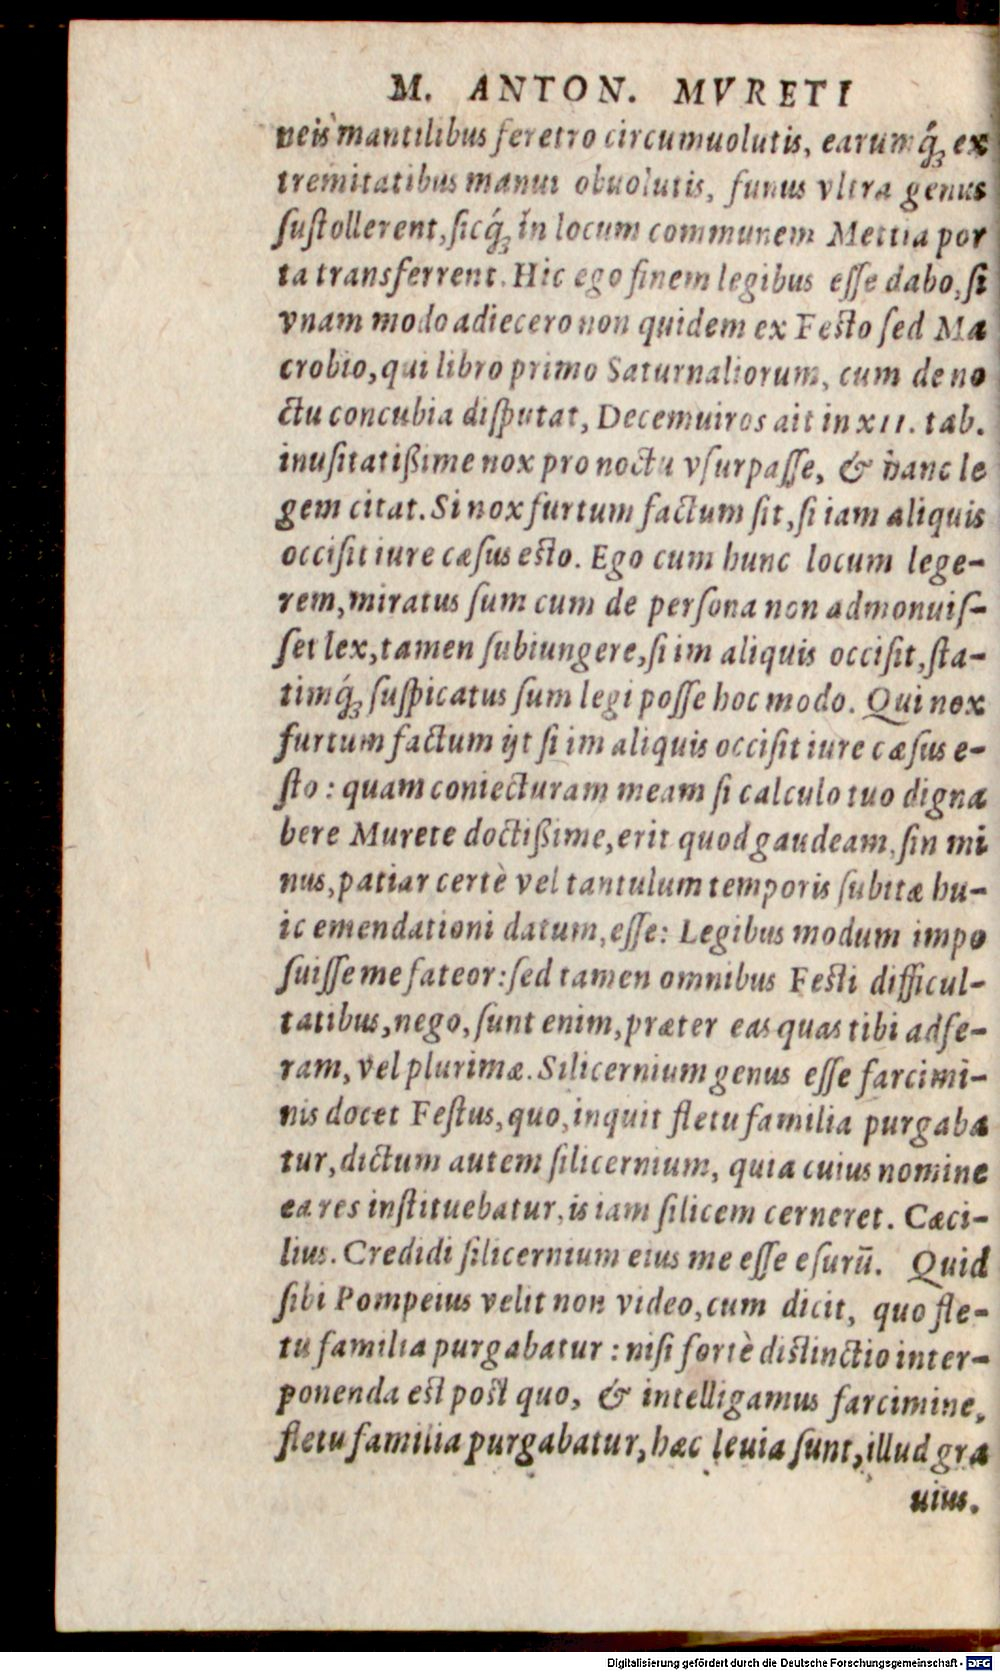 M. ANTON. MVRETI
neis mantilibus feretro circumuolutis, earumq́; ex
tremitatibus manui obuolutis, funus vltra genus
ſuſtollerent, ſicq́; in locum communem Mettia por
ta transferrent. Hic ego finem legibus eſſe dabo, ſi
vnam modo adiecero non quidem ex Feſto ſed Ma
crobio, qui libro primo Saturnaliorum, cum de no
ctu concubia diſputat, Decemuiros ait in XII. tab.
inuſitatißime nox pro noctu vſurpaſſe, & hanc le
gem citat. Si nox furtum factum ſit, ſi iam aliquis
occiſit iure cæſus eſto. Ego cum hunc locum lege-
rem, miratus ſum cum de perſona non admonuiſ-
ſet lex, tamen ſubiungere, ſi im aliquis occiſit, ſta-
timq́; ſuſpicatus ſum legi poſſe hoc modo. Qui nox
furtum factum ijt ſi im aliquis occiſit iure cæſus e-
ſto: quam coniecturam meam ſi calculo tuo digna
bere Murete doctißime, erit quod gaudeam, ſin mi
nus, patiar certè vel tantulum temporis ſubitæ hu-
ic emendationi datum, eſſe: Legibus modum impo
ſuiſſe me fateor: ſed tamen omnibus Feſti difficul-
tatibus, nego, ſunt enim, præter eas quas tibi adfe-
ram, vel plurimæ. Silicernium genus eſſe farcimi-
nis docet Feſtus, quo, inquit fletu familia purgaba
tur, dictum autem ſilicernium, quia cuius nomine
ea res inſtituebatur, is iam ſilicem cerneret. Cæci-
lius. Credidi ſilicernium eius me eſſe eſurū. Quid
ſibi Pompeius velit non video, cum dicit, quo fle-
tu familia purgabatur: niſi fortè diſtinctio inter-
ponenda eſt poſt quo, & intelligamus farcimine,
fletu familia purgabatur, hæc leuia ſunt, illud gra
uius.
Digitalisierung gefördert durch die Deutsche Forschungsgemeinschaft - DFG